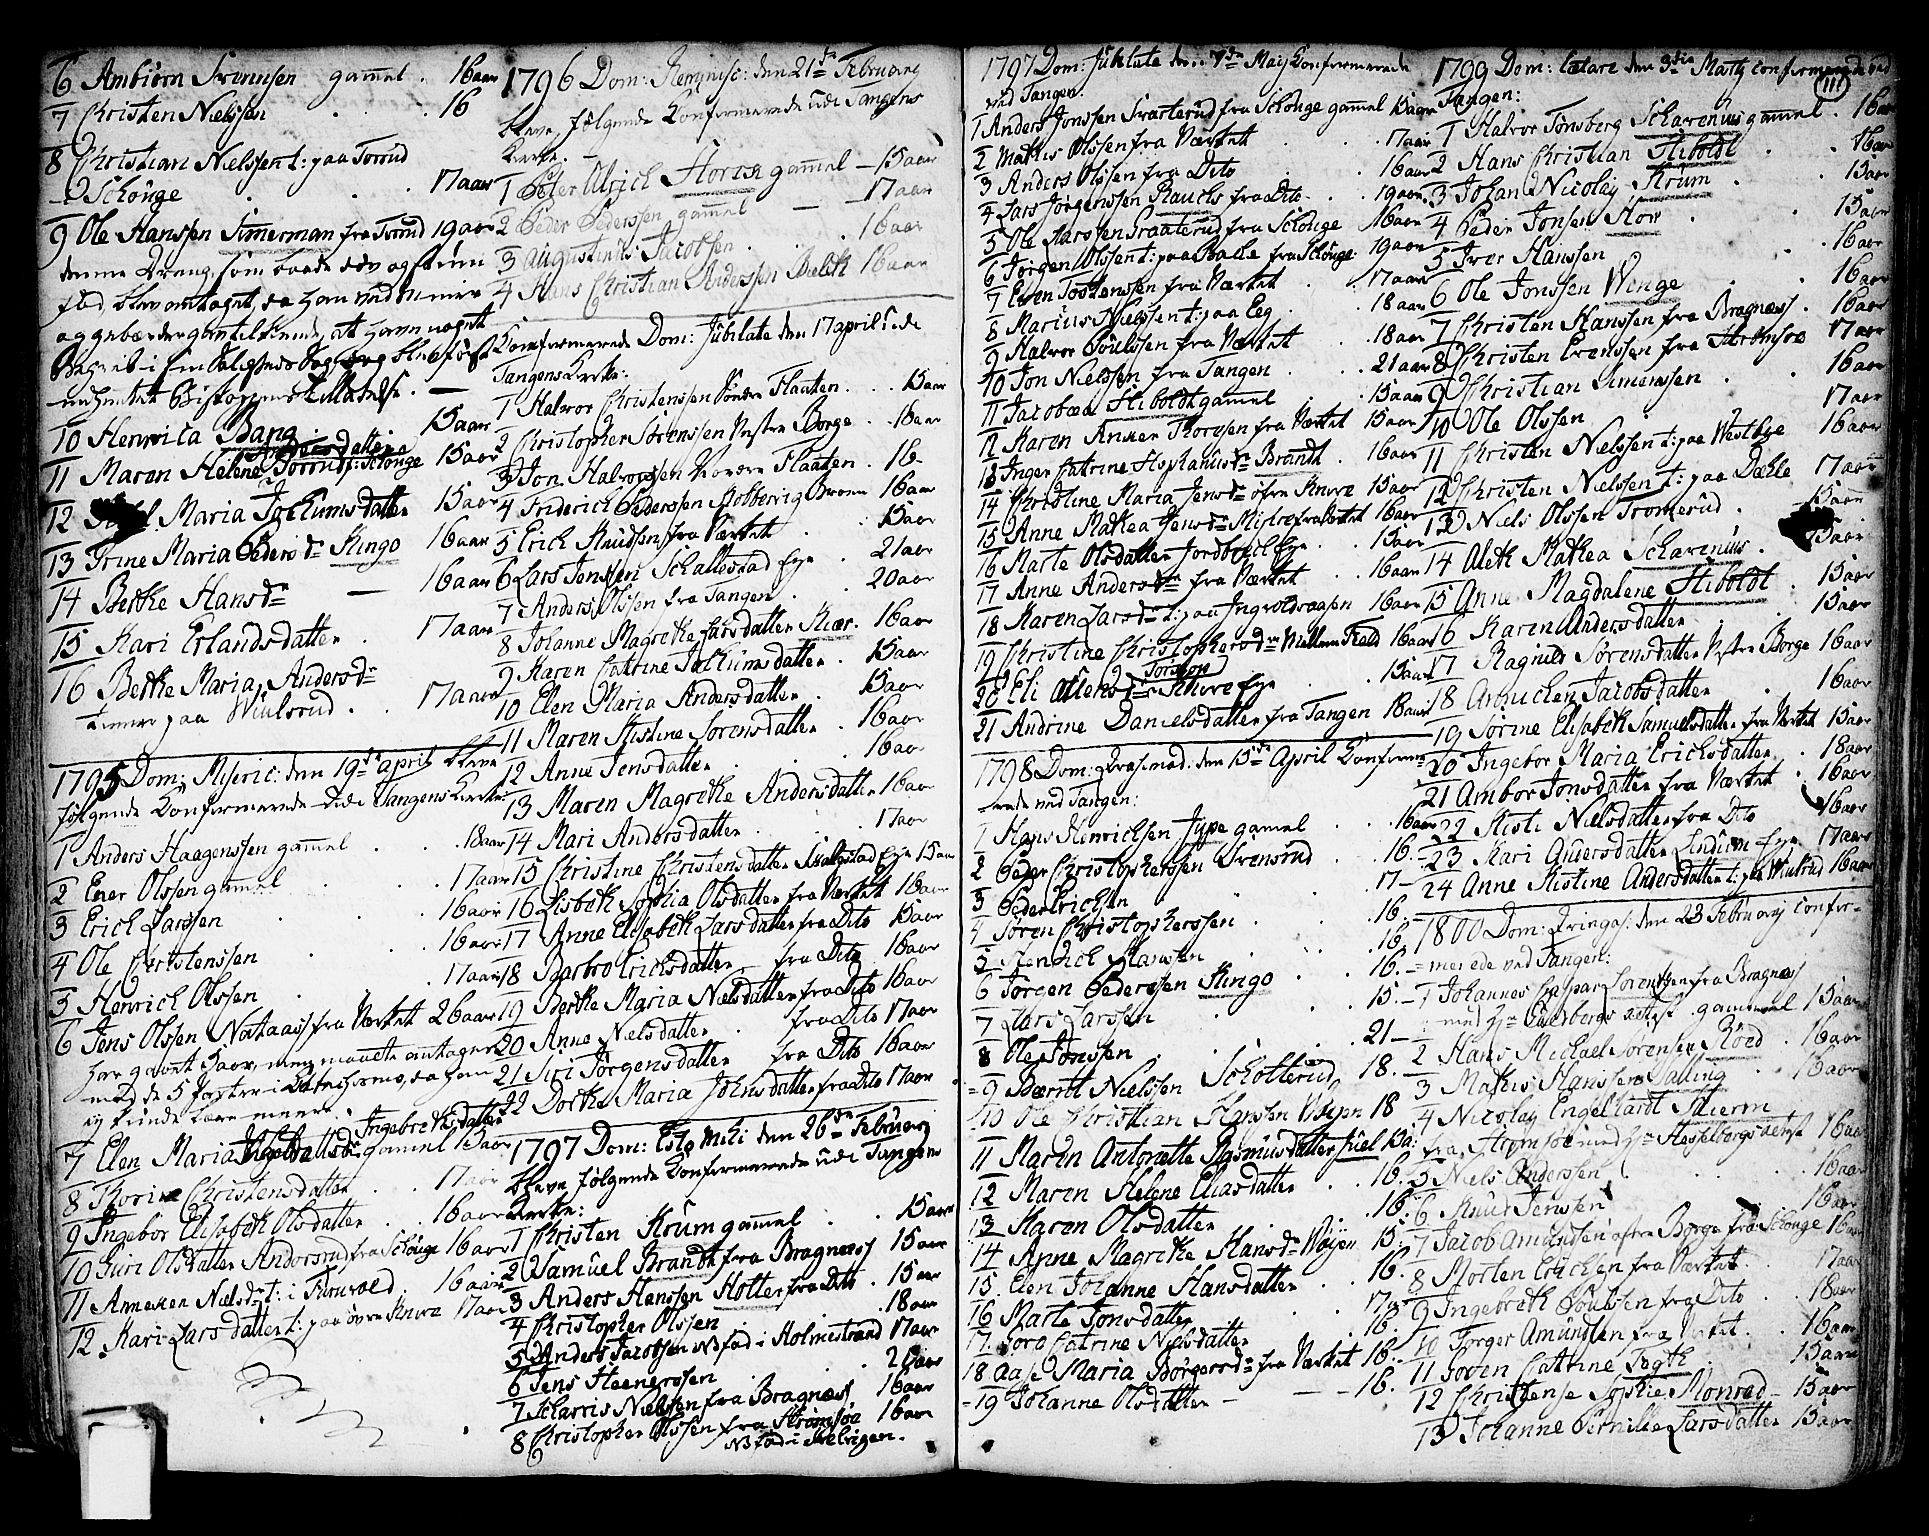 6 Ambiörn Svennsen gammel . 16 aar
7 Christen Nielssen . . . 16
8 Christian Nielssen t: paa Torud
i Schouge . . . 17 aar
9 Ole Hanssen Timerman fra Torud 19 aar
denne Dreng, som baade döv og stum
fød, blev antaget, da han ved miner
og gebærder gav tilkiende, at havn noget
Begreb i sin Saligheds Sag, dog blev först
indhentet Bispens tilladelse. —
10 Henrica Bang . 15 aar
Andersdatter
11 Maren Helene Torud f: Schouge 15 aar
12 Maria Jochumsdatter 15 aar
13 Trine Maria Peders dr Kingo 16 aar
14 Berthe Hansdr — 16 aar
15 Kari Erlandsdatter . 17 aar
16 Berthe Maria Andersdr
tiener paa Wiulsrud . 17 aar
1795 Dom: Miseric: den 19de april bleve
følgende Konfirmerede udi Tangens Kerke:
1 Anders Haagenssen gammel . . 18 aar
2 Ever Olssen gammel . . . 17 aar
3 Erich Larssen . . . 16 aar
4 Ole Christenssen . . . 16 aar
5 Henrich Olssen . . . 17 aar
6 Jens Olssen Nataas fra Værket 26 aar
har gaaet 3 aar, men maatte antages
med de 5 Parter i Catechismo, da han
ej kunde lære meere.
Ingebrethsdatter
7 Elen Maria gammel 15 aar
8 Thorine Christensdatter . . 17 aar
9 Ingebor Elisabeth Olsdatter . . 16 aar
10 Guri Olsdatter Andorsrud fra Schouge 16 aar
11 Anneken Nielsdr t: i Fururold . 16 aar
12 Kari Larsdatter t: paa øvre Knive 17 aar
1796 Dom: Reminisc: den 21de Februarij
bleve følgende Konfirmerede udi Tangens
Kerke. —
1 Peter Ulrich Horen gammel — 15 aar
2 Peder Pederssen gammel — — 17 aar
3 Augustinus Jacobsen . . . 16 aar
4 Hans Christian Anderssen Balch 16 aar
Konfirmerede Dom: Jubilate den 17 april udi
Tangens Kerke:
1 Halvor Christenssen søndre Flaaten . . 15 aar
2 Christopher Sørenssen Vestre Borge . . 16 aar
3 Jon Halvorssen Nordre Flaaten . 16.
4 Friderich Pederssen Brøne 16 aar
5 Erich Knudssen fra Værket . 15 aar
6 Lars Jenssen Schallestad Eye . 21 aar
7 Anders Olssen fra Tangen . . 20 aar
8 Johanne Magrethe Larsdatter Kiær. 16 aar
9 Karen Cathrine Jochumsdatter . 15 aar
10 Elen Maria Andersdatter . . 15 aar
11 Maren Kistine Sorensdatter . 16 aar
12 Anne Jensdatter . . . 16 aar
13 Maren Magrethe Andersdatter 16 aar
14 Mari Andersdatter . . . 17 aar
15 Christine Christensdatter Skalgstad Eye 15 aar
16 Lisbeth Sophia Olsdatter fra Værket 16 aar
17 Anne Elisabeth Larsdatter fra Dito 15 aar
18 Barbro Erichsdatter — fra Dito 16 aar
19 Berthe Maria Nielsdatter fra Dito 16 aar
20 Anne Nielsdatter . fra Dito 17 aar
21 Siri Jörgensdatter fra Dito 16 aar
22 Dorthe Maria Johnsdatter fra Dito 17 aar
1797 Dom: Esto Mihi den 26de Februarij
bleve følgende Konfirmerede udi Tangens
Kerke:
1 Christen Krum gammel . . 15 aar
2 Samuel Brandt fra Bragnæss 15 aar
3 Anders Hanssen Holter fra Dito . 15 aar
4 Christopher Olssen . . . 18 aar
5 Anders Jacobssen NB fød i Holmestrand 17 aar
6 Jens Steenerssen . . . 21 aar
7 Scharris Nielssen fra Bragness 16 aar
8 Christopher Olssen fra Strömsøe 16 aar
NB fød i Selvigen.
1797 Dom: Jubilate den 7de Maij Konfirmerede
ved Tangen.
1 Anders Jonssen Svarterud fra Schouge gammel 15 aar
2 Mathis Olssen fra Værket . . . 17 aar
3 Anders Olssen fra Dito . . . 16 aar
4 Lars Jörgenssen Rauchs fra Dito . . . 19 aar
5 Ole Larssen Traaterud fra Schouge 16 aar
6 Jørgen Olssen t: paa Balle fra Schouge 19 aar
7 Even Tostenssen fra Værket . . 17 aar
8 Marius Nielssen t: paa Eeg . . . 18 aar
9 Halvor Poulssen fra Værket . . 18 aar
10 Jon Nielssen fra Tangen . . . 21 aar
11 Jacobæa Stiboldt gammel . . 15 aar
12 Karen Anker Thoresen fra Værket 15 aar
13 Inger Catrine Stephanusdr Brandt . 16 aar
14 Christine Maria Jensdr øfre Knive 15 aar
15 Anne Mathea Jensdr Mistre fra Værket 16 aar
16 Marte Olsdatter Jordbech Eye . . 15 aar
17 Anne Andersdr fra Værket . . 16 aar
18 Karen Larsdr t: paa Ingvoldsaasen 16 aar
19 Christine Christophersdr Wiellum Eed 16 aar
20 Eli Ottersdr Knive Eye . . 15 aar
21 Andrine Danielsdatter fra Tangen 18 aar
1798 Dom: Qvasimod: den 15de April Konfirme-
rede ved Tangen:
1 Hans Henrichsen Jype gamel . . 16 aar
2 Peder Christopherssen Svensrud . . 16. —
3 Peder Erichsen . . . 17 —
4 Sören Christopherssen . . . 16. —
5 Hendrich Hanssen . . . 16.
6 Jörgen Pederssen Kingo . . . 16. —
7 Lars Larssen . . . 15. —
8 Ole Jonssen . . . 21 —
9 Bærnt Nielssen Schotterud 18. —
10 Ole Christian Hanssen Wøyen 18
11 Maren Antonette Rasmusdatter Juel 15 a:
12 Maren Helene Eliasdatter . . 16.
13 Karen Olsdatter . . . 16.
14 Anne Magrethe Hansdr Wøyen 15:
15 Elen Johanne Hansdatter . . 16.
16 Marte Jonsdatter . . . 17.
17 Toro Catrine Nielsdatter . . . 16.
18 Aase Maria Borgersdr fra Værket 16.
19 Johanne Olsdatter — — — 16.
111
1799 Dom: Lætare den 3die Martij confirmerede ved
Tangen:
1 Halvor Tönsberg Scharenius gammel . 16 aar
2 Hans Christian Stiboldt . . 16 aar
3 Johan Nicolay Krum . . 15 aar
4 Peder Jonsen Hoer . . . 15 aar
5 Iver Hanssen . . . 16 aar
6 Ole Jonssen Wenge . . . 16 aar
7 Christen Hanssen fra Bragness . 16 aar
8 Christen Evenssen fra Strømsøe 17 aar
9 Christian Simenssen . . 16 aar
10 Ole Olssen . . . 17 aar
11 Christen Nielssen t: paa Westbye 16 aar
12 Christen Nielssen t: paa Dæhle 17 aar
13 Niels Olssen Tromerud . . 15 aar
14 Aleth Mathea Scharenius . . 15 aar
15 Anne Magdalene Stiboldt . 15 aar
16 Karen Andersdatter . . 15 aar
17 Ragnild Sörensdatter Vestre Borge 16 aar
18 Annichen Jacobsdatter . . 16 aar
19 Sørine Elisabeth Samuelsdatter fra Værket 15 aar
20 Ingebor Maria Erichsdatter . 18 aar
21 Ambor Jonsdatter fra Værket . 16 aar
22 Kisti Nielsdatter fra Dito . 16 aar
23 Kari Andersdatter Lindum Eye 17 aar
24 Anne Kistine Andersdatter t: paa Wiulsrud 16 aar
1800 Dom: Qvinqvag: den 23 Februarij confir-
merede ved Tangen:
1 Johannes Caspar Lorentzen fra Bragnæss
med Hr attest gammel 15 aar
2 Hans Michael Sørensen Röed . 16 aar
3 Mathis Hanssen Salling . . 16 aar
4 Nicolay Engelhardt Stierm
fra Strømsöe med Hr attest 16 aar
5 Niels Andersen . . . 16 aar
6 Knud Jenssen . . . 16 aar
7 Jacob Amundsen øfre Borge fra Schouge 16 aar
8 Morten Erichsen fra Værket . . 17 aar
9 Ingebreth Poulssen fra Dito . . 18 aar
10 Torger Amundsen fra Værket . . 16 aar
11 Catrine Fogth . . 15 aar
12 Christense Sophie Monrad — 15 aar
13 Johanne Pernille Larsdatter 15 aar